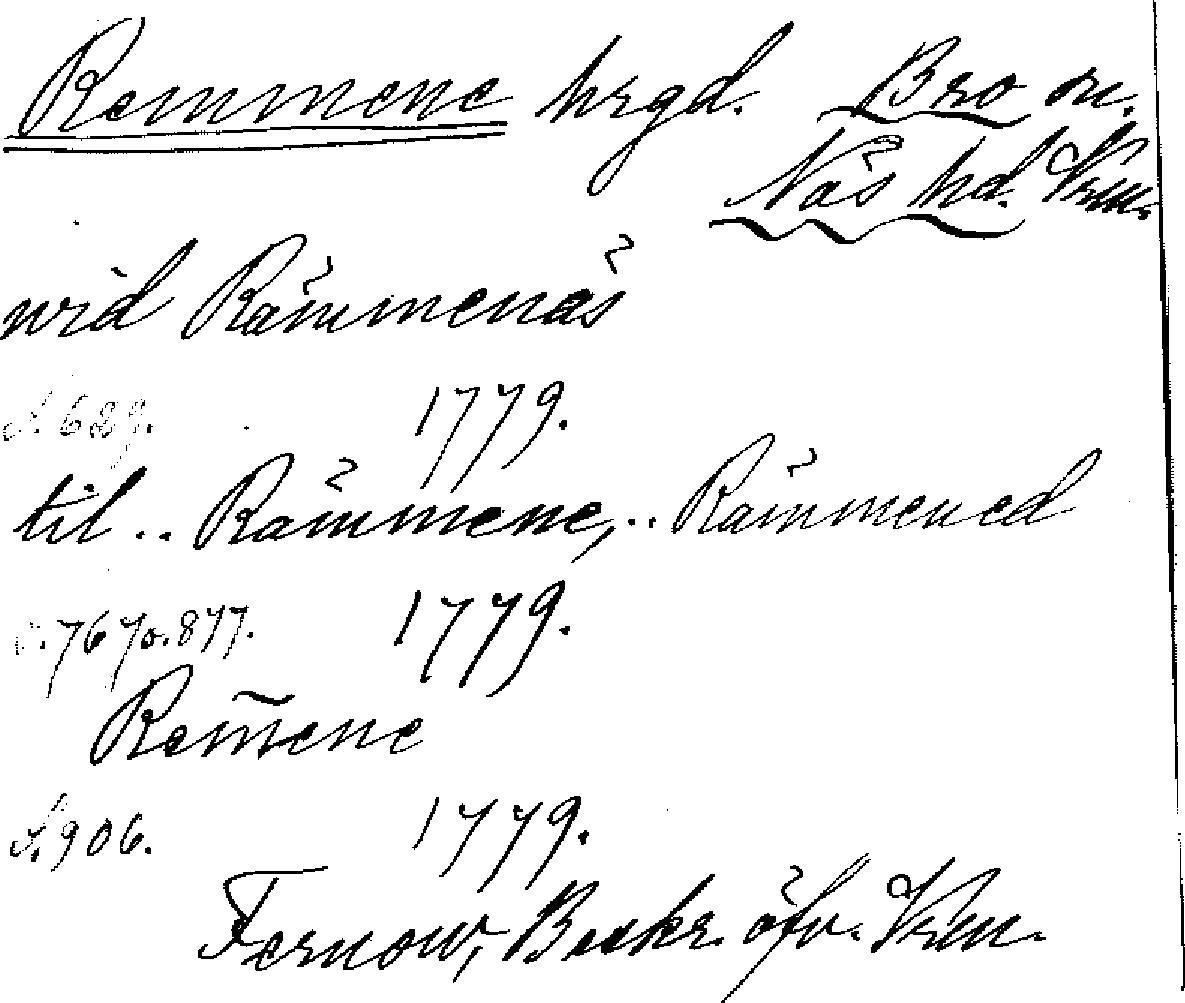 Remmene hrgd. Bro sn.
Näs hd. Vrm.
wid Rämmenäs
S. 629. 1779.
til .. Rämmene, .. Rämmened
S. 767 o. 877. 1779.
Rem̄ene
S. 906. 1779.
Fernow, Beskr. öfv. Vrm.